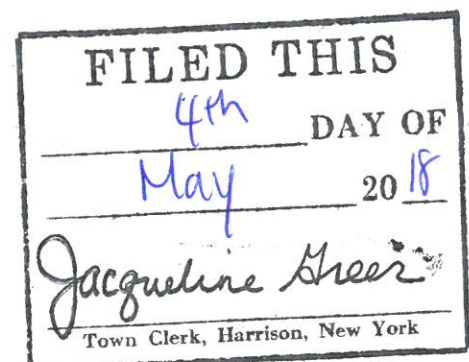 FILED THIS
4th DAY OF
May 2018
Jacqueline Greer
Town Clerk, Harrison, New York